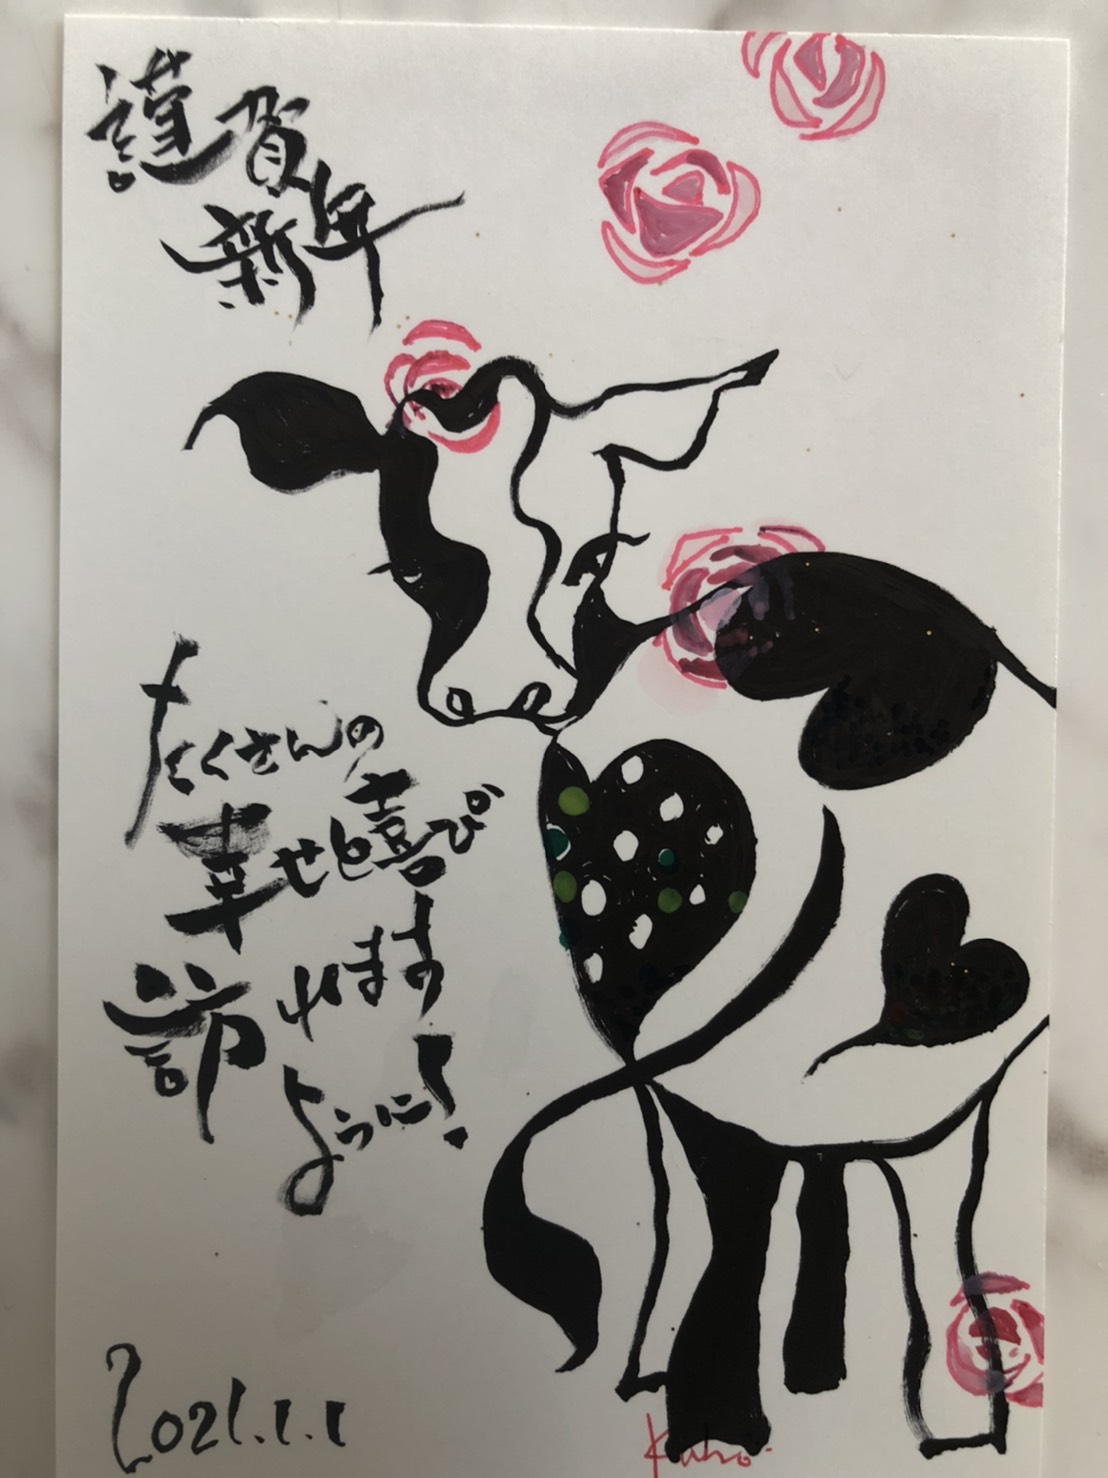 謹賀
新年
たくさんの
幸せと喜び
訪れます
ように!
2021.1.1
Kaho